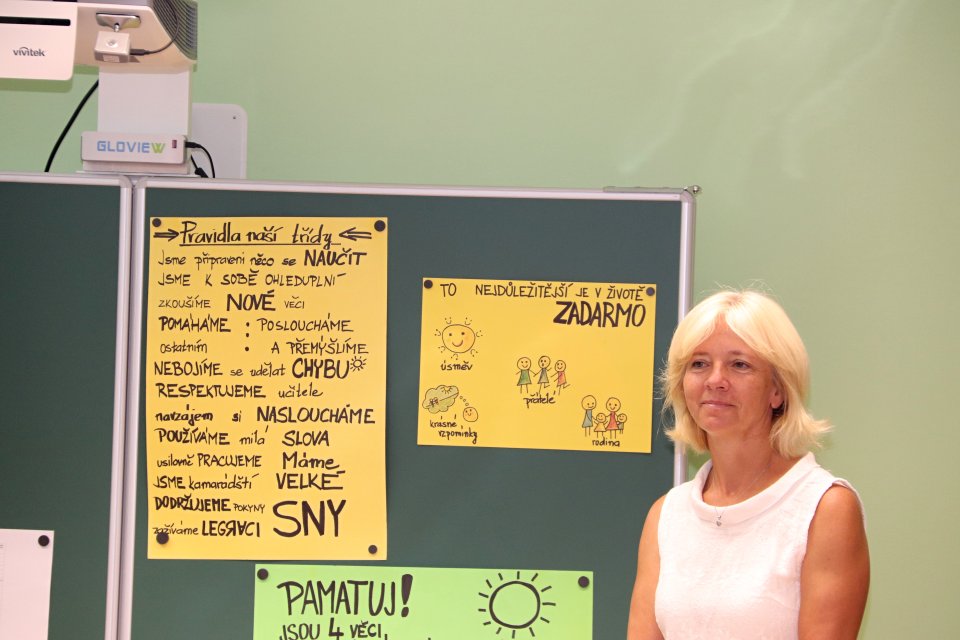 vivitek
GLOVIEW
Pravidla naší třídy
Jsme připraveni něco se NAUČIT
JSME K SOBĚ OHLEDUPLNÍ
ZKOUŠÍME NOVÉ VĚCI
POMÁHÁME : POSLOUCHÁME
ostatním : A PŘEMÝŠLÍME
NEBOJÍME se udělat CHYBU
RESPEKTUJEME učitele
navzájem si NASLOUCHÁME
POUŽÍVÁME milá SLOVA
usilovně PRACUJEME Máme
JSME kamarádští VELKÉ
DODRŽUJEME POKYNY SNY
zažíváme LEGRACI
TO NEJDŮLEŽITĚJŠÍ JE V ŽIVOTĚ
ZADARMO
úsměv
přátelé
krásné
vzpomínky
rodina
PAMATUJ!
JSOU 4 VĚCI,